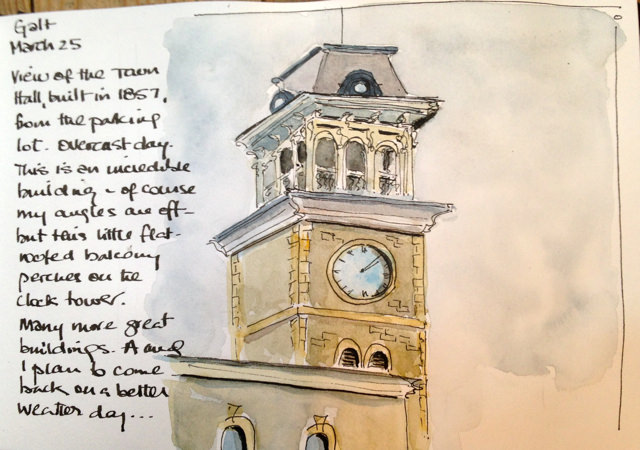 Galt
March 25
View of the Town
Hall, built in 1857,
from the parking
lot. Overcast day.
This is an incredible
building - of course
my angles are off -
but this little flat-
roofed balcony
perches on the
clock tower.
Many more great
buildings. A and
I plan to come
back on a better
weather day...